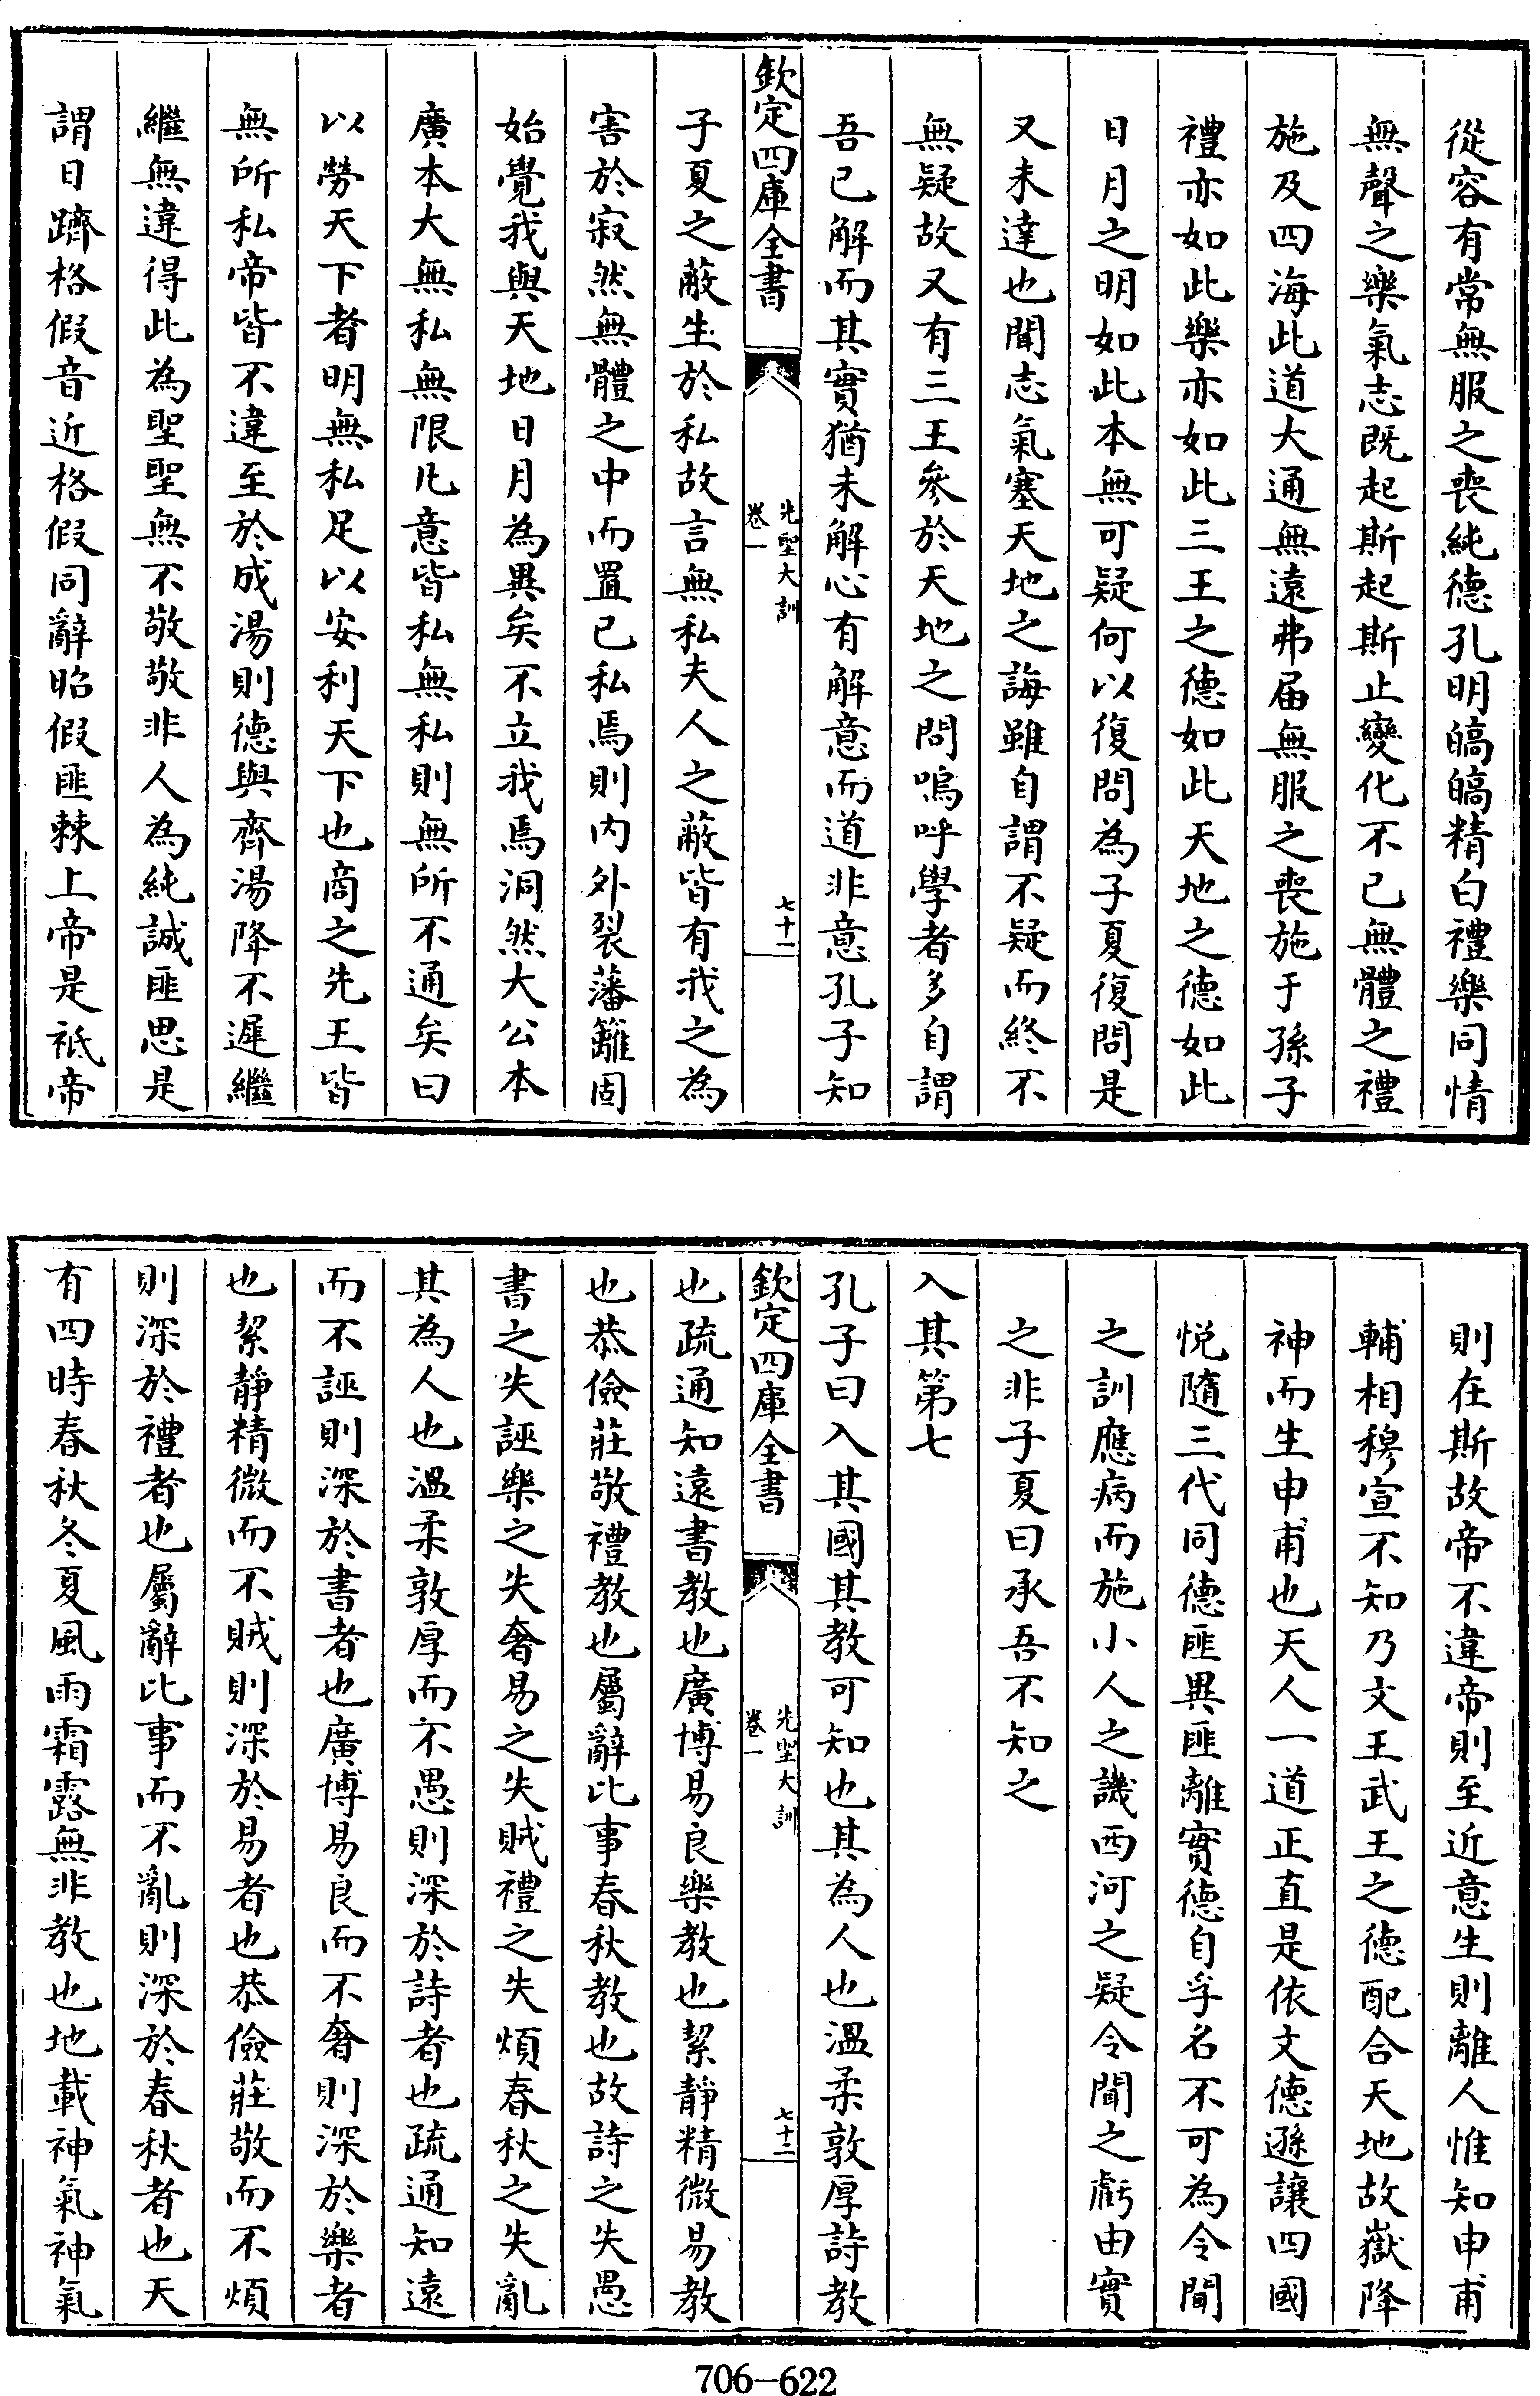 從容有常無服之喪純德孔明皜皜精白禮樂同情
無聲之樂氣志既起斯起斯止變化不已無體之禮
施及四海此道大通無遠弗届無服之喪施于孫子
禮亦如此樂亦如此三王之德如此天地之德如此
日月之明如此本無可疑何以復問為子夏復問是
又未達也聞志氣塞天地之誨雖自謂不疑而終不
無疑故又有三王參於天地之問嗚呼學者多自謂
吾已解而其實猶未解心有解意而道非意孔子知
欽定四庫全書
先聖大訓
卷一
七十一
子夏之蔽生於私故言無私夫人之蔽皆有我之為
害於寂然無體之中而置已私焉則内外裂藩籬固
始覺我與天地日月為異矣不立我焉洞然大公本
廣本大無私無限凡意皆私無私則無所不通矣曰
以勞天下者明無私足以安利天下也商之先王皆
無所私帝皆不違至於成湯則德與齊湯降不遲繼
繼無違得此為聖聖無不敬敬非人為純誠匪思是
謂日躋格假音近格假同辭昭假匪棘上帝是祗帝
則在斯故帝不違帝則至近意生則離人惟知申甫
輔相穆宣不知乃文王武王之德配合天地故嶽降
神而生申甫也天人一道正直是依文德遜讓四國
悦隨三代同德匪異匪離實德自孚名不可為令聞
之訓應病而施小人之譏西河之疑令聞之虧由實
之非子夏曰承吾不知之
入其第七
孔子曰入其國其教可知也其為人也溫柔敦厚詩教
欽定四庫全書
先聖大訓
卷一
七十二
也疏通知遠書教也廣博易良樂教也絜靜精微易教
也恭儉莊敬禮教也屬辭比事春秋教也故詩之失愚
書之失誣樂之失奢易之失賊禮之失煩春秋之失亂
其為人也溫柔敦厚而不愚則深於詩者也疏通知遠
而不誣則深於書者也廣博易良而不奢則深於樂者
也絜靜精微而不賊則深於易者也恭儉莊敬而不煩
則深於禮者也屬辭比事而不亂則深於春秋者也天
有四時春秋冬夏風雨霜露無非教也地載神氣神氣
706-622